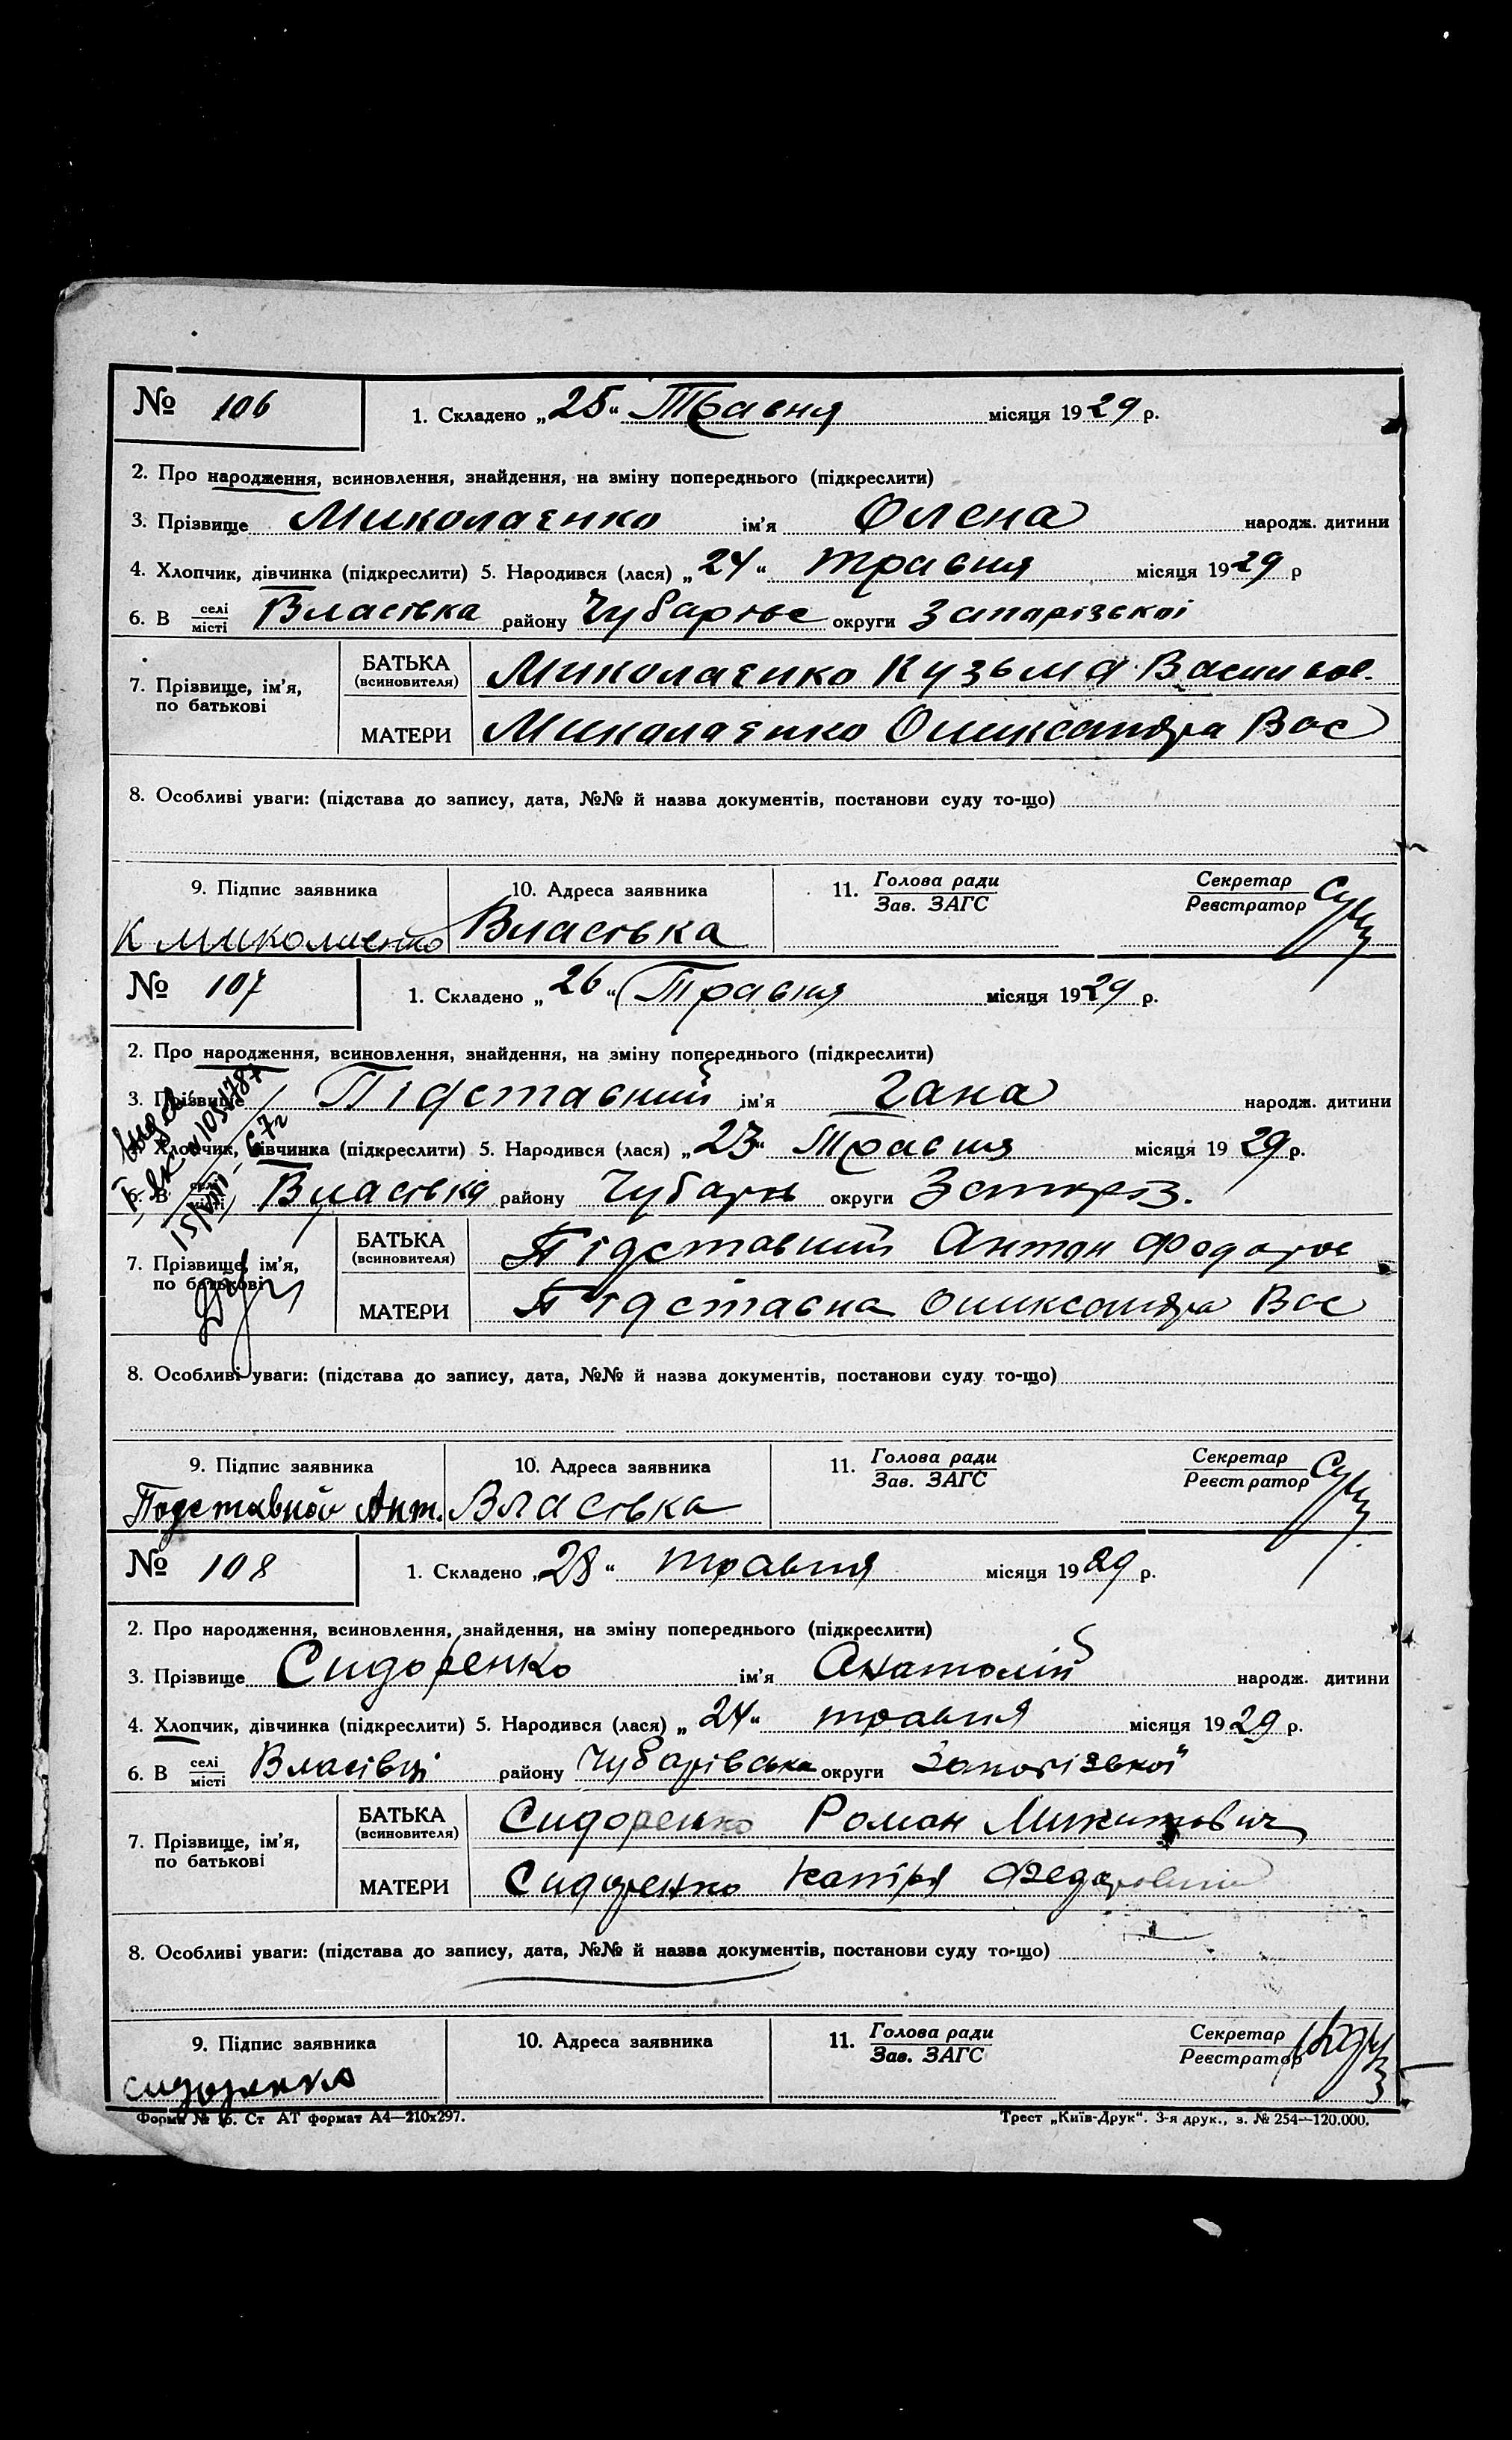 № 106 1. Складено „25“ Травня місяця 1929 р.
2. Про народження, всиновлення, знайдення, на зміну попереднього (підкреслити)
3. Прізвище Миколаєнко ім’я Олена народж. дитини
4. Хлопчик, дівчинка (підкреслити) 5. Народився (лася) „24“ травня місяця 1929 р
6. В селі місті Власівка району Чубарівс округи Запорізької
7. Прізвище, ім’я, по батькові
БАТЬКА (всиновителя) Миколаєнко Кузьма Васильов.
МАТЕРИ Миколаєнко Олександра Вас
8. Особливі уваги: (підстава до запису, дата, №№ й назва документів, постанови суду то-що)
9. Підпис заявника 10. Адреса заявника 11. Голова ради Зав. ЗАГС Секретар Реєстратор
К Миколаенко Власівка
№ 107 1. Складено „26“ Травня місяця 1929 р.
2. Про народження, всиновлення, знайдення, на зміну попереднього (підкреслити)
3. Прізвище Підставний ім’я Гана народж. дитини
Хлопчик, дівчинка (підкреслити) 5. Народився (лася) „23“ Травня місяця 1929 р.
6. В селі місті Власівка району Чубарів округи Запоріз.
7. Прізвище, ім’я, по батькові
БАТЬКА (всиновителя) Підставний Антон Федоров
МАТЕРИ Підставна Олександра Вас
8. Особливі уваги: (підстава до запису, дата, №№ й назва документів, постанови суду то-що)
9. Підпис заявника 10. Адреса заявника 11. Голова ради Зав. ЗАГС Секретар Реєстратор
Подставной Ант. Власівка
№ 108 1. Складено „28“ травня місяця 1929 р.
2. Про народження, всиновлення, знайдення, на зміну попереднього (підкреслити)
3. Прізвище Сидоренко ім’я Анатолій народж. дитини
4. Хлопчик, дівчинка (підкреслити) 5. Народився (лася) „24“ травня місяця 1929 р.
6. В селі місті Власівці району Чубарівська округи Запорізької
7. Прізвище, ім’я, по батькові
БАТЬКА (всиновителя) Сидоренко Роман Микитович
МАТЕРИ Сидоренко Катря Федоровна
8. Особливі уваги: (підстава до запису, дата, №№ й назва документів, постанови суду то-що)
9. Підпис заявника 10. Адреса заявника 11. Голова ради Зав. ЗАГС Секретар Реєстратор
Сидоренко
Форма № 16. Ст АТ формат А4—210х297. Трест „Київ-Друк“. 3-я друк., з. № 254—120.000.